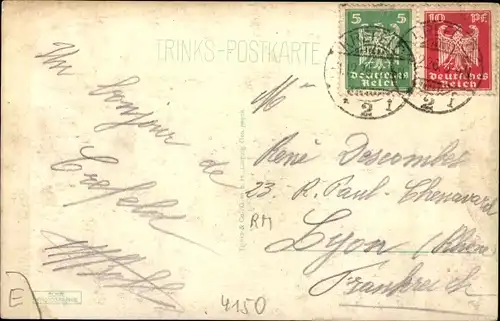 TRINKS-POSTKARTE
5 5
Deutsches
Reich
10 Pf.
Deutsches
Reich
2 f
2 f
Un bonjour de
Crefeld
Mr
René Descombes
23. R. Paul-Chenavard
Lyon (Rhône
Frankreich
RM
4150
E